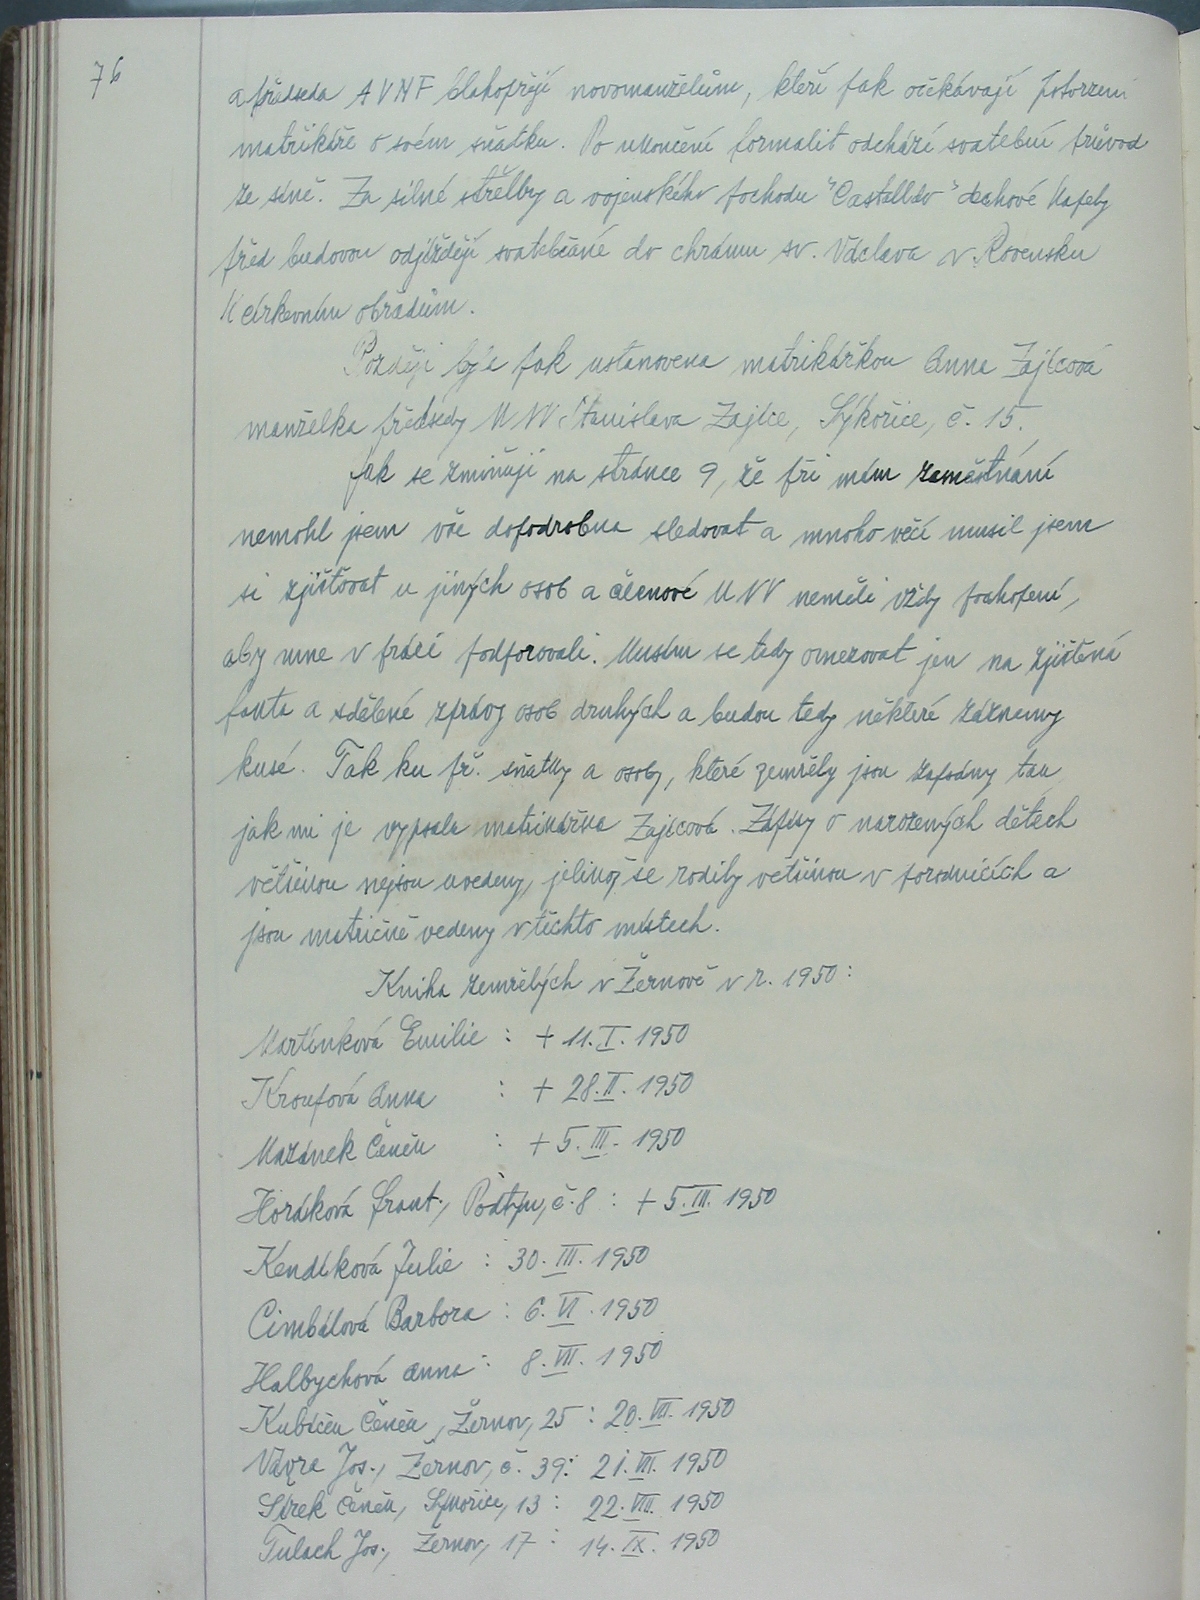 76
a předseda AVNF blahopřejí novomanželům, kteří pak očekávají potvrzení
matrikáře o svém sňatku. Po ukončení formalit odchází svatební průvod
ze síně. Za silné střelby a vojenského pochodu "Castelldo" dechové kapely
před budovou odjíždějí svatebčané do chrámu sv. Václava v Rovensku
k církevním obřadům.
Později byla pak ustanovena matrikářkou Anna Zajícová
manželka předsedy MNV Stanislava Zajíce, Sýkořice, č. 15.
Jak se zmiňuji na stránce 9, že při mém zaměstnání
nemohl jsem vše dopodrobna sledovat a mnoho věcí musil jsem
si zjišťovat u jiných osob a členové MNV neměli vždy pochopení,
aby mne v práci podporovali. Musím se tedy omezovat jen na zjištěná
fakta a sdělené zprávy osob druhých a budou tedy některé záznamy
kusé. Tak ku př. sňatky a osoby, které zemřely jsou zapsány tak
jak mi je vypsala matrikářka Zajícová. Zápisy o narozených dětech
většinou nejsou uvedeny, jelikož se rodily většinou v porodnicích a
jsou matričně vedeny v těchto místech.
Kniha zemřelých v Žernově v r. 1950:
Martínková Emilie : + 11. I. 1950
Kroupová Anna : + 28. II. 1950
Mazánek Čeněk : + 5. III. 1950
Horáková Frant., Podtýn, č. 8 : + 5. III. 1950
Kendíková Julie : 30. III. 1950
Cimbálová Barbora : 6. VI. 1950
Halbychová Anna : 8. VII. 1950
Kubíček Čeněk, Žernov, 25 : 20. VII. 1950
Vávra Jos., Žernov, č. 39: 21. VII. 1950
Šírek Čeněk, Sýkořice, 13 : 22. VIII. 1950
Tulach Jos., Žernov, 17 : 14. IX. 1950